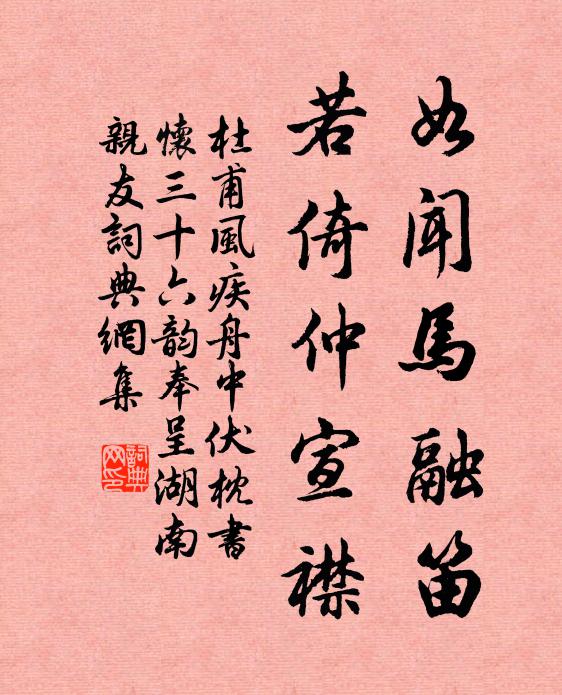 如闻馬融笛
若倚仲宣襟
杜甫風疾舟中伏枕書
懷三十六韵奉呈湖南
親友詞典網集
詞典
网印